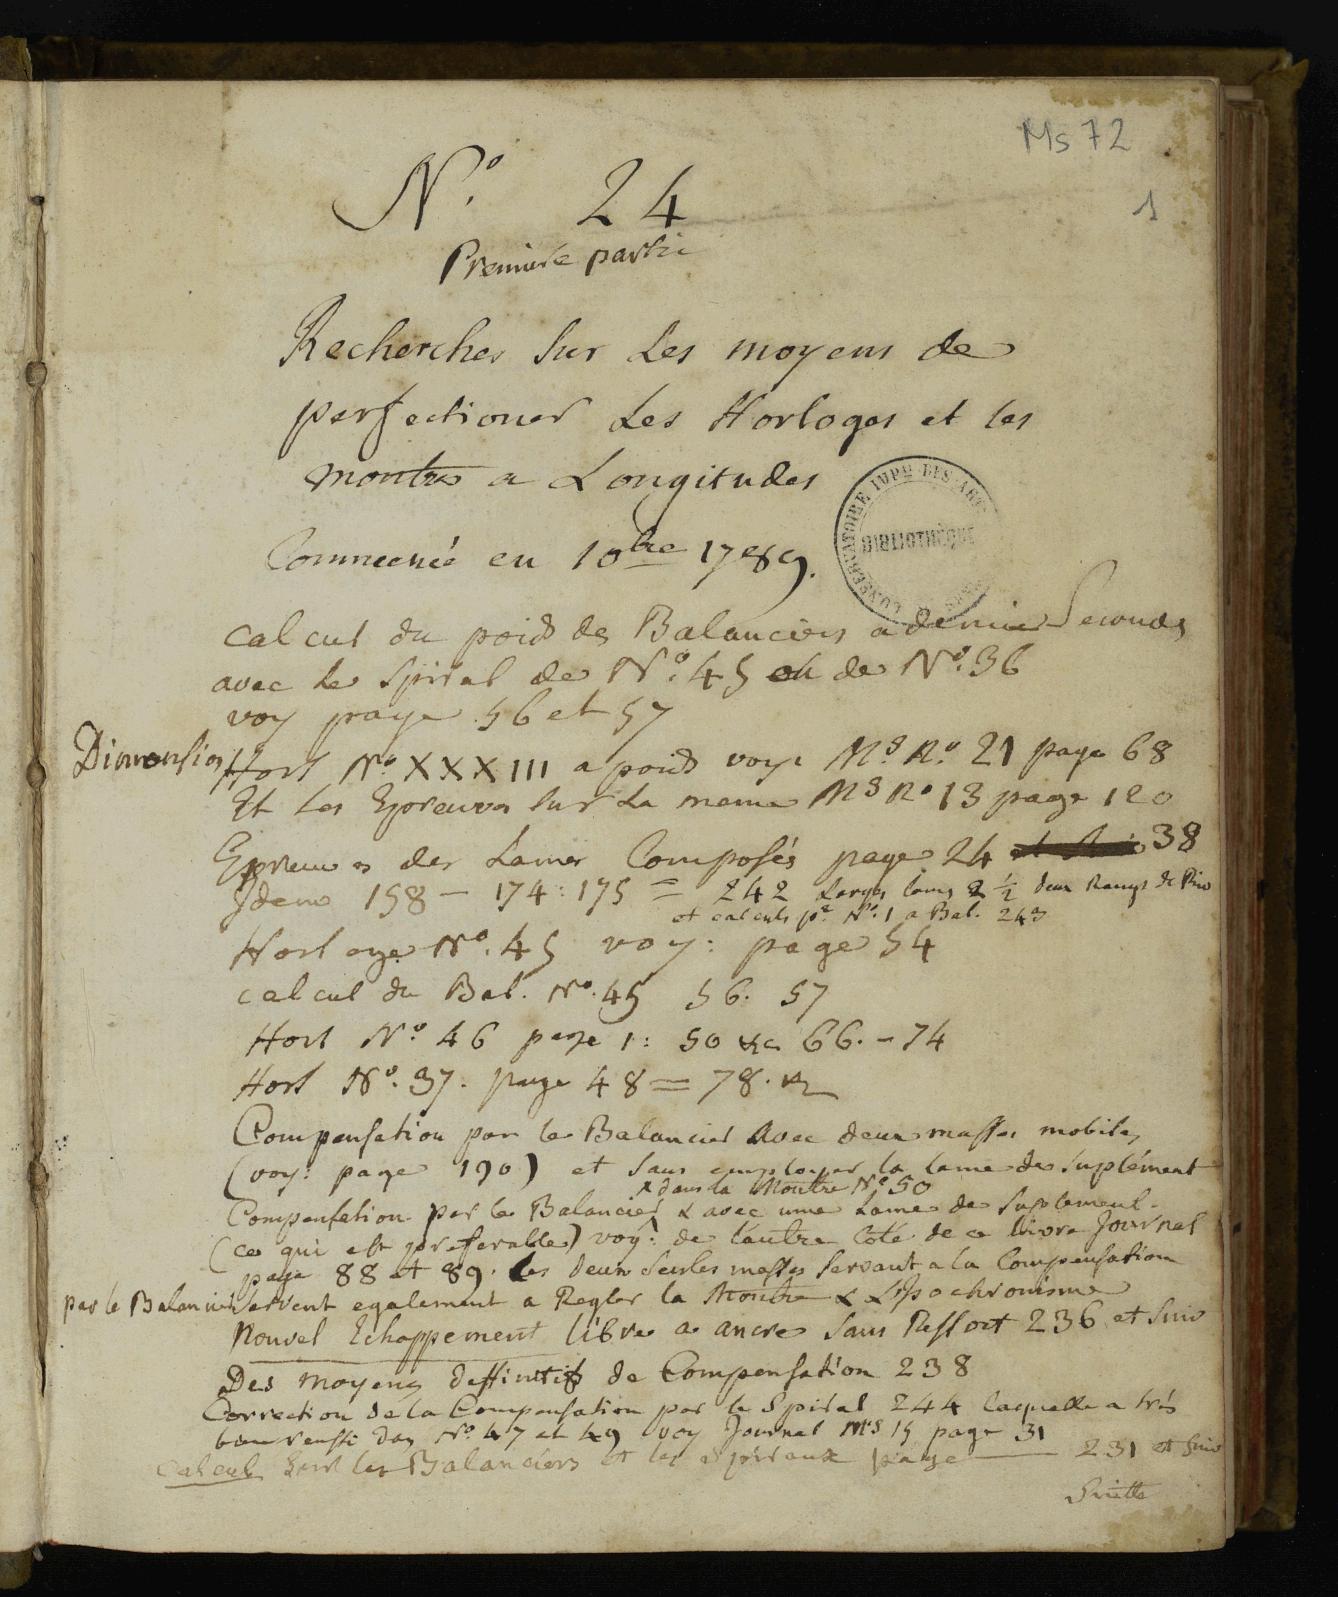 Ms 72
1
N.° 24
Premiere partie
Recherches sur Les moyens de
perfectioner Les Horloges et les
montres a Longitudes
CONSERVATOIRE IMP.AL DES ARTS
BIBLIOTHÈQUE
Commencé en 10bre 1789.
calcul du poids des Balanciers a demie Secondes
avec le spiral de N.° 45 ou de N.° 36
voy page 56 et 57
Dimensions Horl N.° XXXIII a poids voye M.S N.° 21 page 68
Et Les Epreuves sur La meme MS N° 13 page 120
Epreuves des Lames Composés page 24 38
Idem 158 - 174 : 175 = 242 Larges lames 2 1/2 deux Rangs de
et calculs pr. N.° 1 a Bal. 243
Horloge N.° 45 voy : page 54
calcul du Bal. N.° 45 56. 57
Horl N.° 46 page 1 : 50 &c 66. - 74
Horl N.° 37. page 48 = 78. &
Compensation par le Balancier Avec deux masses mobiles
(voy : page 190) et sans employer la lame de suplément
dans la Montre N.° 50
Compensation par le Balancier & avec une Lame de suplement.
(ce qui est preferable) voy : de l'autre Coté de ce livre Journal
page 88 et 89. Les deux seules masses servant a la Compensation
par le Balancier servent egalement a Regler la Montre & L'Isochronisme
Nouvel Echappement libre a ancre sans Ressort 236 et suiv
Des moyens deffinitifs de Compensation 238
Correction de la Compensation par le Spiral 244 laquelle a très
bien reussi dans N.° 47 et 49 voy Journal MS 15 page 31
calculs sur les Balanciers et les spiraux page 231 et suiv
Suitte